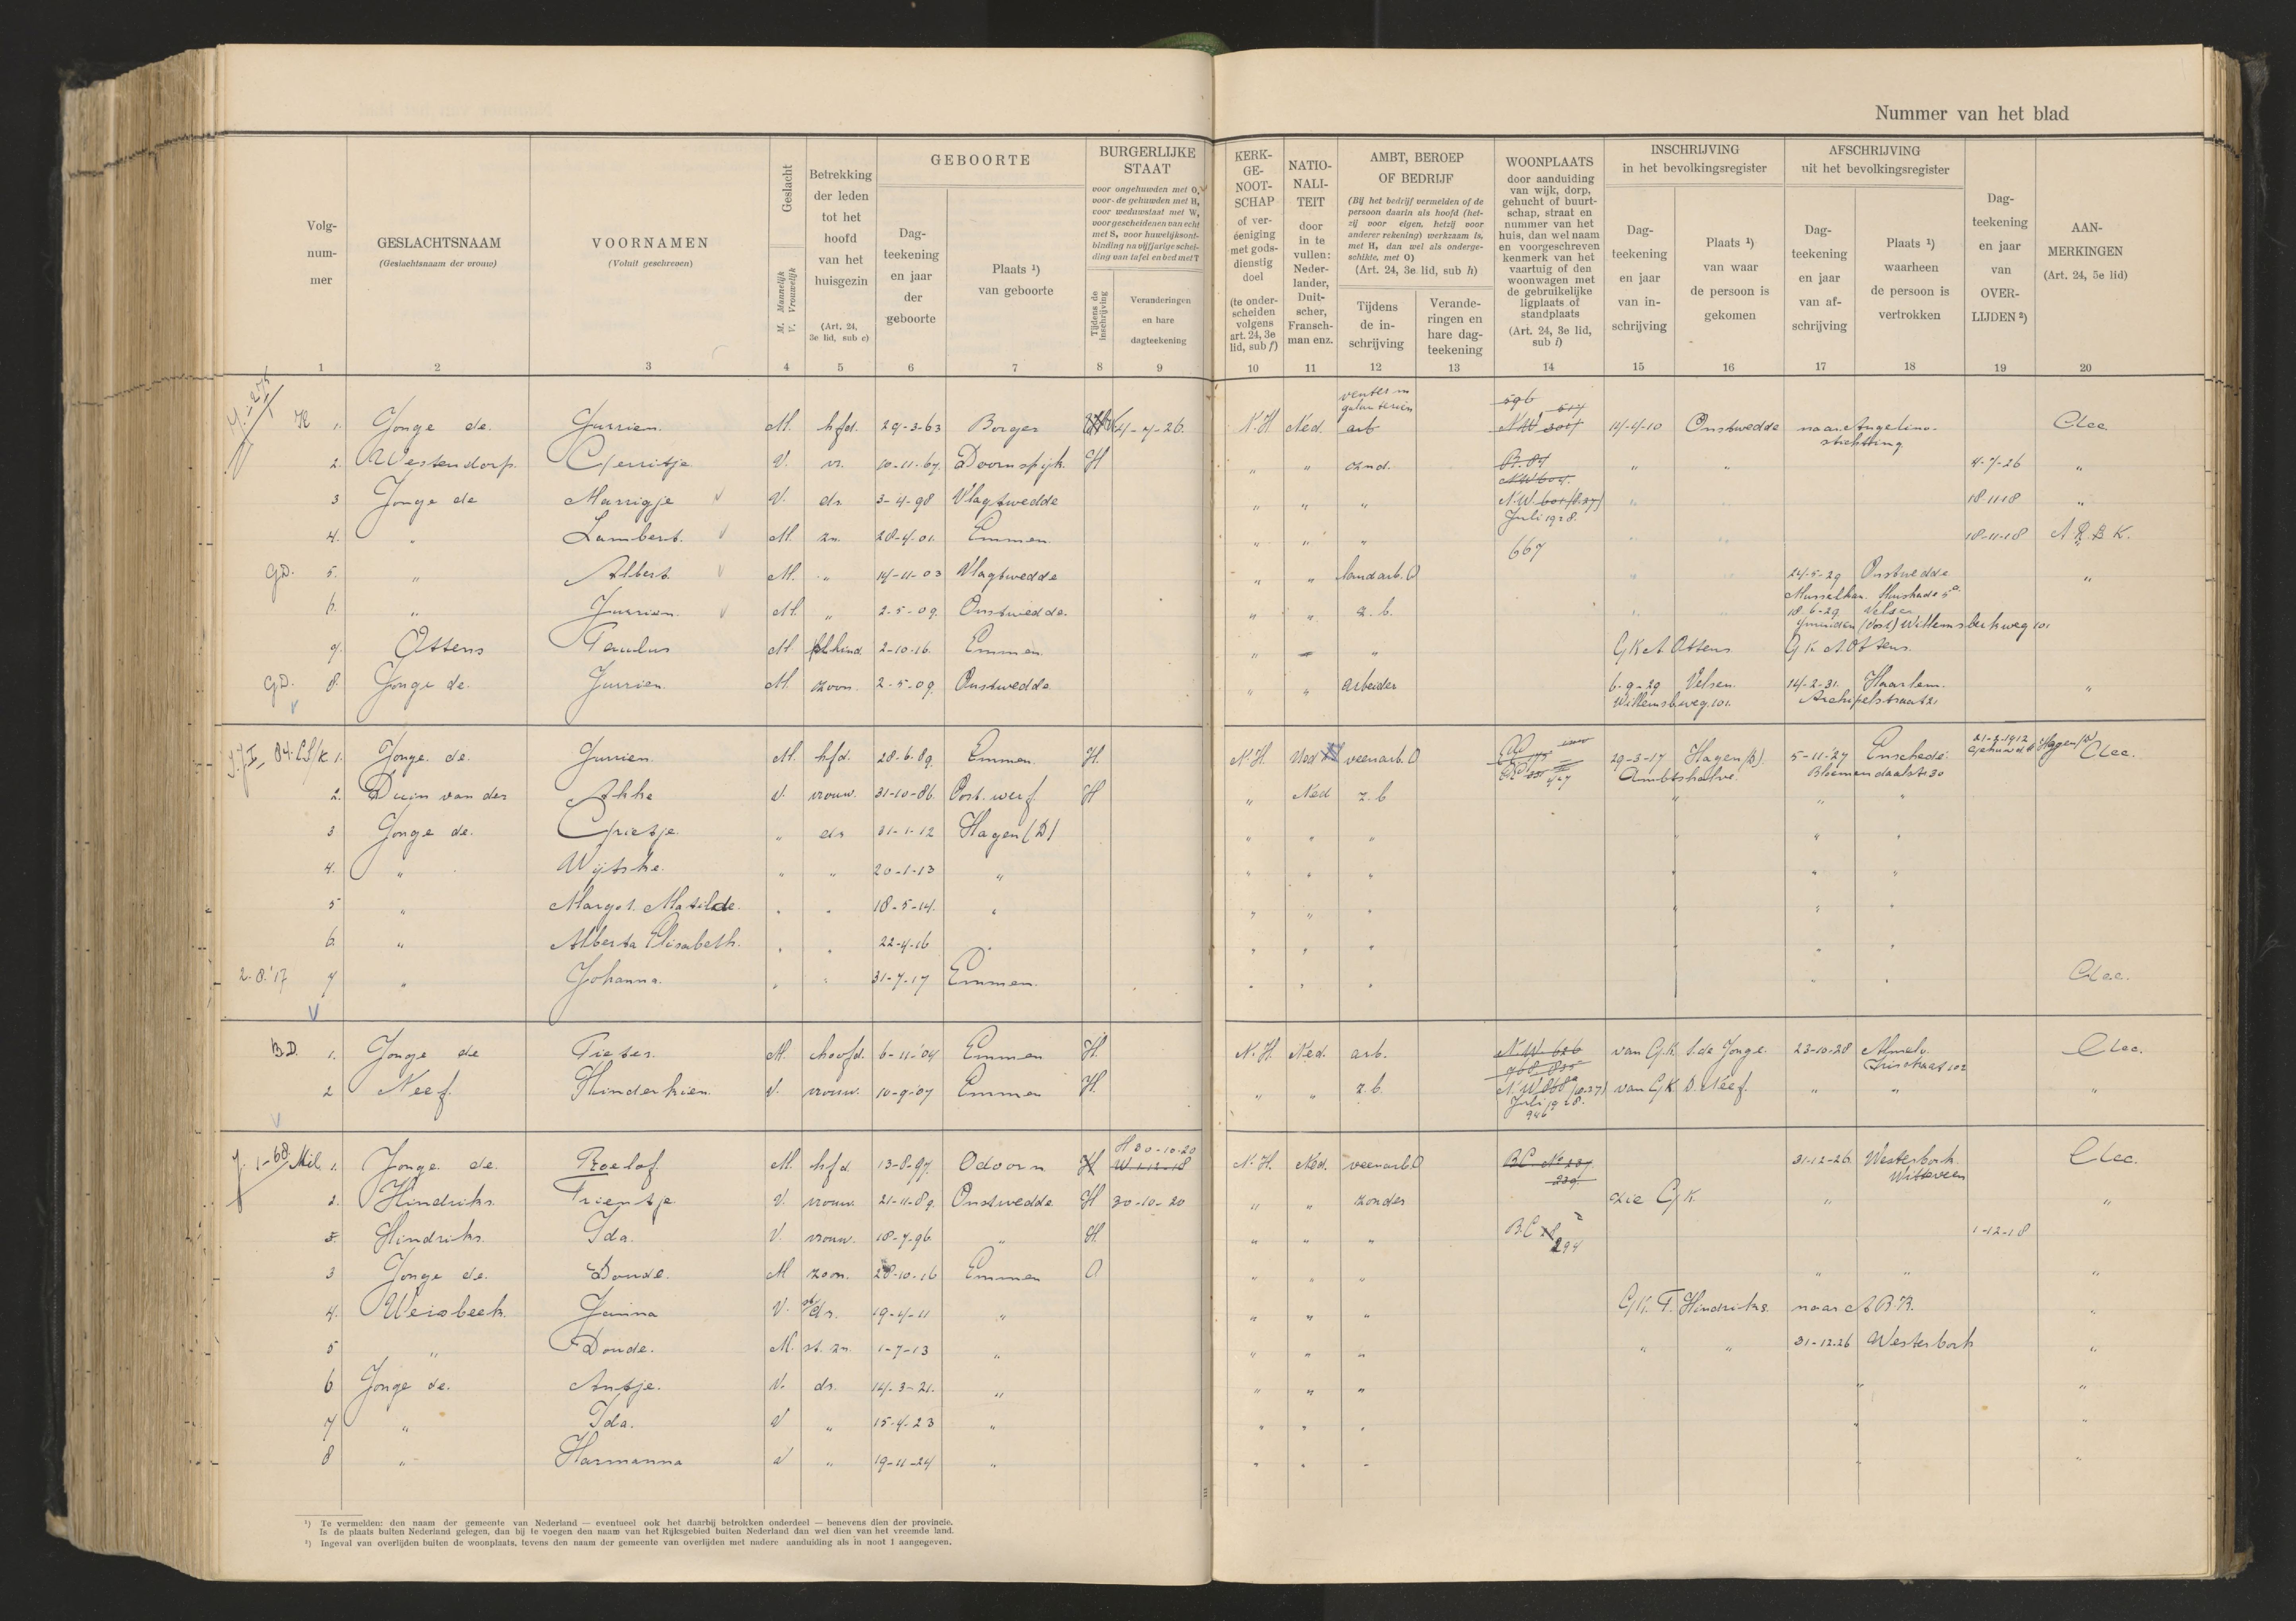 Nummer van het blad
Volg-
num-
mer
GESLACHTSNAAM
(Geslachtsnaam der vrouw)
VOORNAMEN
(Voluit geschreven)
Geslacht
M. Mannelijk
V. Vrouwelijk
Betrekking
der leden
tot het
hoofd
van het
huisgezin
(Art. 24,
3e lid, sub c)
GEBOORTE
Dag-
teekening
en jaar
der
geboorte
Plaats ¹)
van geboorte
BURGERLIJKE
STAAT
voor ongehuwden met O,
voor de gehuwden met H,
voor weduwstaat met W,
voor gescheidenen van echt
met S, voor huwelijksont-
binding na vijfjarige schei-
ding van tafel en bed met T
Tijdens de
inschrijving
Veranderingen
en hare
dagteekening
KERK-
GE-
NOOT-
SCHAP
of ver-
eeniging
met gods-
dienstig
doel
(te onder-
scheiden
volgens
art. 24, 3e
lid, sub f)
NATIO-
NALI-
TEIT
door
in te
vullen:
Neder-
lander,
Duit-
scher,
Fransch-
man enz.
AMBT, BEROEP
OF BEDRIJF
(Bij het bedrijf vermelden of de
persoon daarin als hoofd (het-
zij voor eigen, hetzij voor
anderer rekening) werkzaam is,
met H, dan wel als onderge-
schikte, met O)
(Art. 24, 3e lid, sub h)
Tijdens
de in-
schrijving
Verande-
ringen en
hare dag-
teekening
WOONPLAATS
door aanduiding
van wijk, dorp,
gehucht of buurt-
schap, straat en
nummer van het
huis, dan wel naam
en voorgeschreven
kenmerk van het
vaartuig of den
woonwagen met
de gebruikelijke
ligplaats of
standplaats
(Art. 24, 3e lid,
sub i)
INSCHRIJVING
in het bevolkingsregister
Dag-
teekening
en jaar
van in-
schrijving
Plaats ¹)
van waar
de persoon is
gekomen
AFSCHRIJVING
uit het bevolkingsregister
Dag-
teekening
en jaar
van af-
schrijving
Plaats ¹)
waarheen
de persoon is
vertrokken
Dag-
teekening
en jaar
van
OVER-
LIJDEN ²)
AAN-
MERKINGEN
(Art. 24, 5e lid)
1 2 3 4 5 6 7 8 9 10 11 12 13 14 15 16 17 18 19 20
venter in
galanterien
596
1. Jonge de. Jurrien. M. hfd. 29-3-63 Borger 4-7-26. N.H Ned. arb 14-4-10 Onstwedde naar Angelino-
stichting
2. Westendorp. Gerritje V. vr. 10-11-67 Doornspijk. H " " z.nd. B.84 " " 4-7-26 "
3 Jonge de Marrigje V. ds. 3-4-98 Vlagtwedde " " " N.W. " " 18-11-18 "
Juli 1928.
4. " Lambert. M. zn. 28-4-01. Emmen. " " " 667 " " 18-11-18 A.R.B.K.
GD. 5. " Albert. M. " 14-11-03 Vlagtwedde " " landarb. O " 24-5-29 Onstwedde "
6. " Jurrien. M. " 2-5-09. Onstwedde. " " z.b. " 18-6-29 Velsen
7. Ottens Paulus M. kind. 2-10-16. Emmen. " " G K A Ottens. G K A Ottens.
GD. 8. Jonge de. Jurrien. M. zoon. 2-5-09. Onstwedde " " arbeider 6-9-29 Velsen. 14-2-31. Haarlem. "
Willemsbweg. 101. Archipelstraat 21
1. Jonge. de. Jurrien. M. hfd. 28-6-89. Emmen. H. N.H. Ned veenarb. O 29-3-17 Hagen (D). 5-11-'27 Enschedé. 21-2-1912 Hagen (D) Clec.
Ambtshalve. Bloemendaalstr 30
2. Duin van der Akke V. vrouw. 31-10-86. Oost. werf. H " Ned z.b " " "
3 Jonge de. Grietje. " ds 31-1-12 Hagen (D) " " " " " "
4. " Wijtske. " " 20-1-13 " " " " " " "
5 " Margot. Matilde. " " 18-5-14. " " " " " " "
6. " Alberta Elisabeth. " " 22-4-16 " " " " "
2-8-'17 7 " Johanna. " " 31-7-17 Emmen. " " " " " Clec.
B.D. 1. Jonge de Pieter. M. hoofd. 6-11-'04 Emmen H. N.H. Ned. arb. N.W. 626 van G.K. S. de Jonge. 23-10-28 Almelo. Clec.
2 Neef. Hinderkien. V. vrouw. 10-9-'07 Emmen H. " " z.b. van G.K. D. Neef. " " "
Juli 1928.
946
H 30-10-20
Mil. 1. Jonge de. Roelof. M. hfd 13-8-97. Odoorn H W 1-12-18 N.H. Ned. veenarb. O B.C. No 237. 31-12-26 Westerbork. Clec.
239. Witteveen
2. Hindriks. Trientje V. vrouw. 21-11-89. Onstwedde. H 30-10-20 " " zonder zie G.K. " "
Hindriks. Ida. V. vrouw. 18-7-96. " H. " " " B.C. 294 1-12-18
3 Jonge de. Doude. M zoon. 28-10-16 Emmen O " " " " " "
4. Weisbeek. Janna V. st ds. 19-4-11 " " " " G.K. T. Hindriks. naar A.B.R. "
5 " Doude. M. st. zn. 1-7-13 " " " " " " 31-12-26 Westerbork "
6 Jonge de. Antje. V. ds. 14-3-21. " " " " " "
7 " Ida. V " 15-4-23 " " " " " "
8 " Harmanna V " 19-11-24 " " " " " "
¹) Te vermelden: den naam der gemeente van Nederland — eventueel ook het daarbij betrokken onderdeel — benevens dien der provincie.
Is de plaats buiten Nederland gelegen, dan bij te voegen den naam van het Rijksgebied buiten Nederland dan wel dien van het vreemde land.
²) Ingeval van overlijden buiten de woonplaats, tevens den naam der gemeente van overlijden met nadere aanduiding als in noot 1 aangegeven.